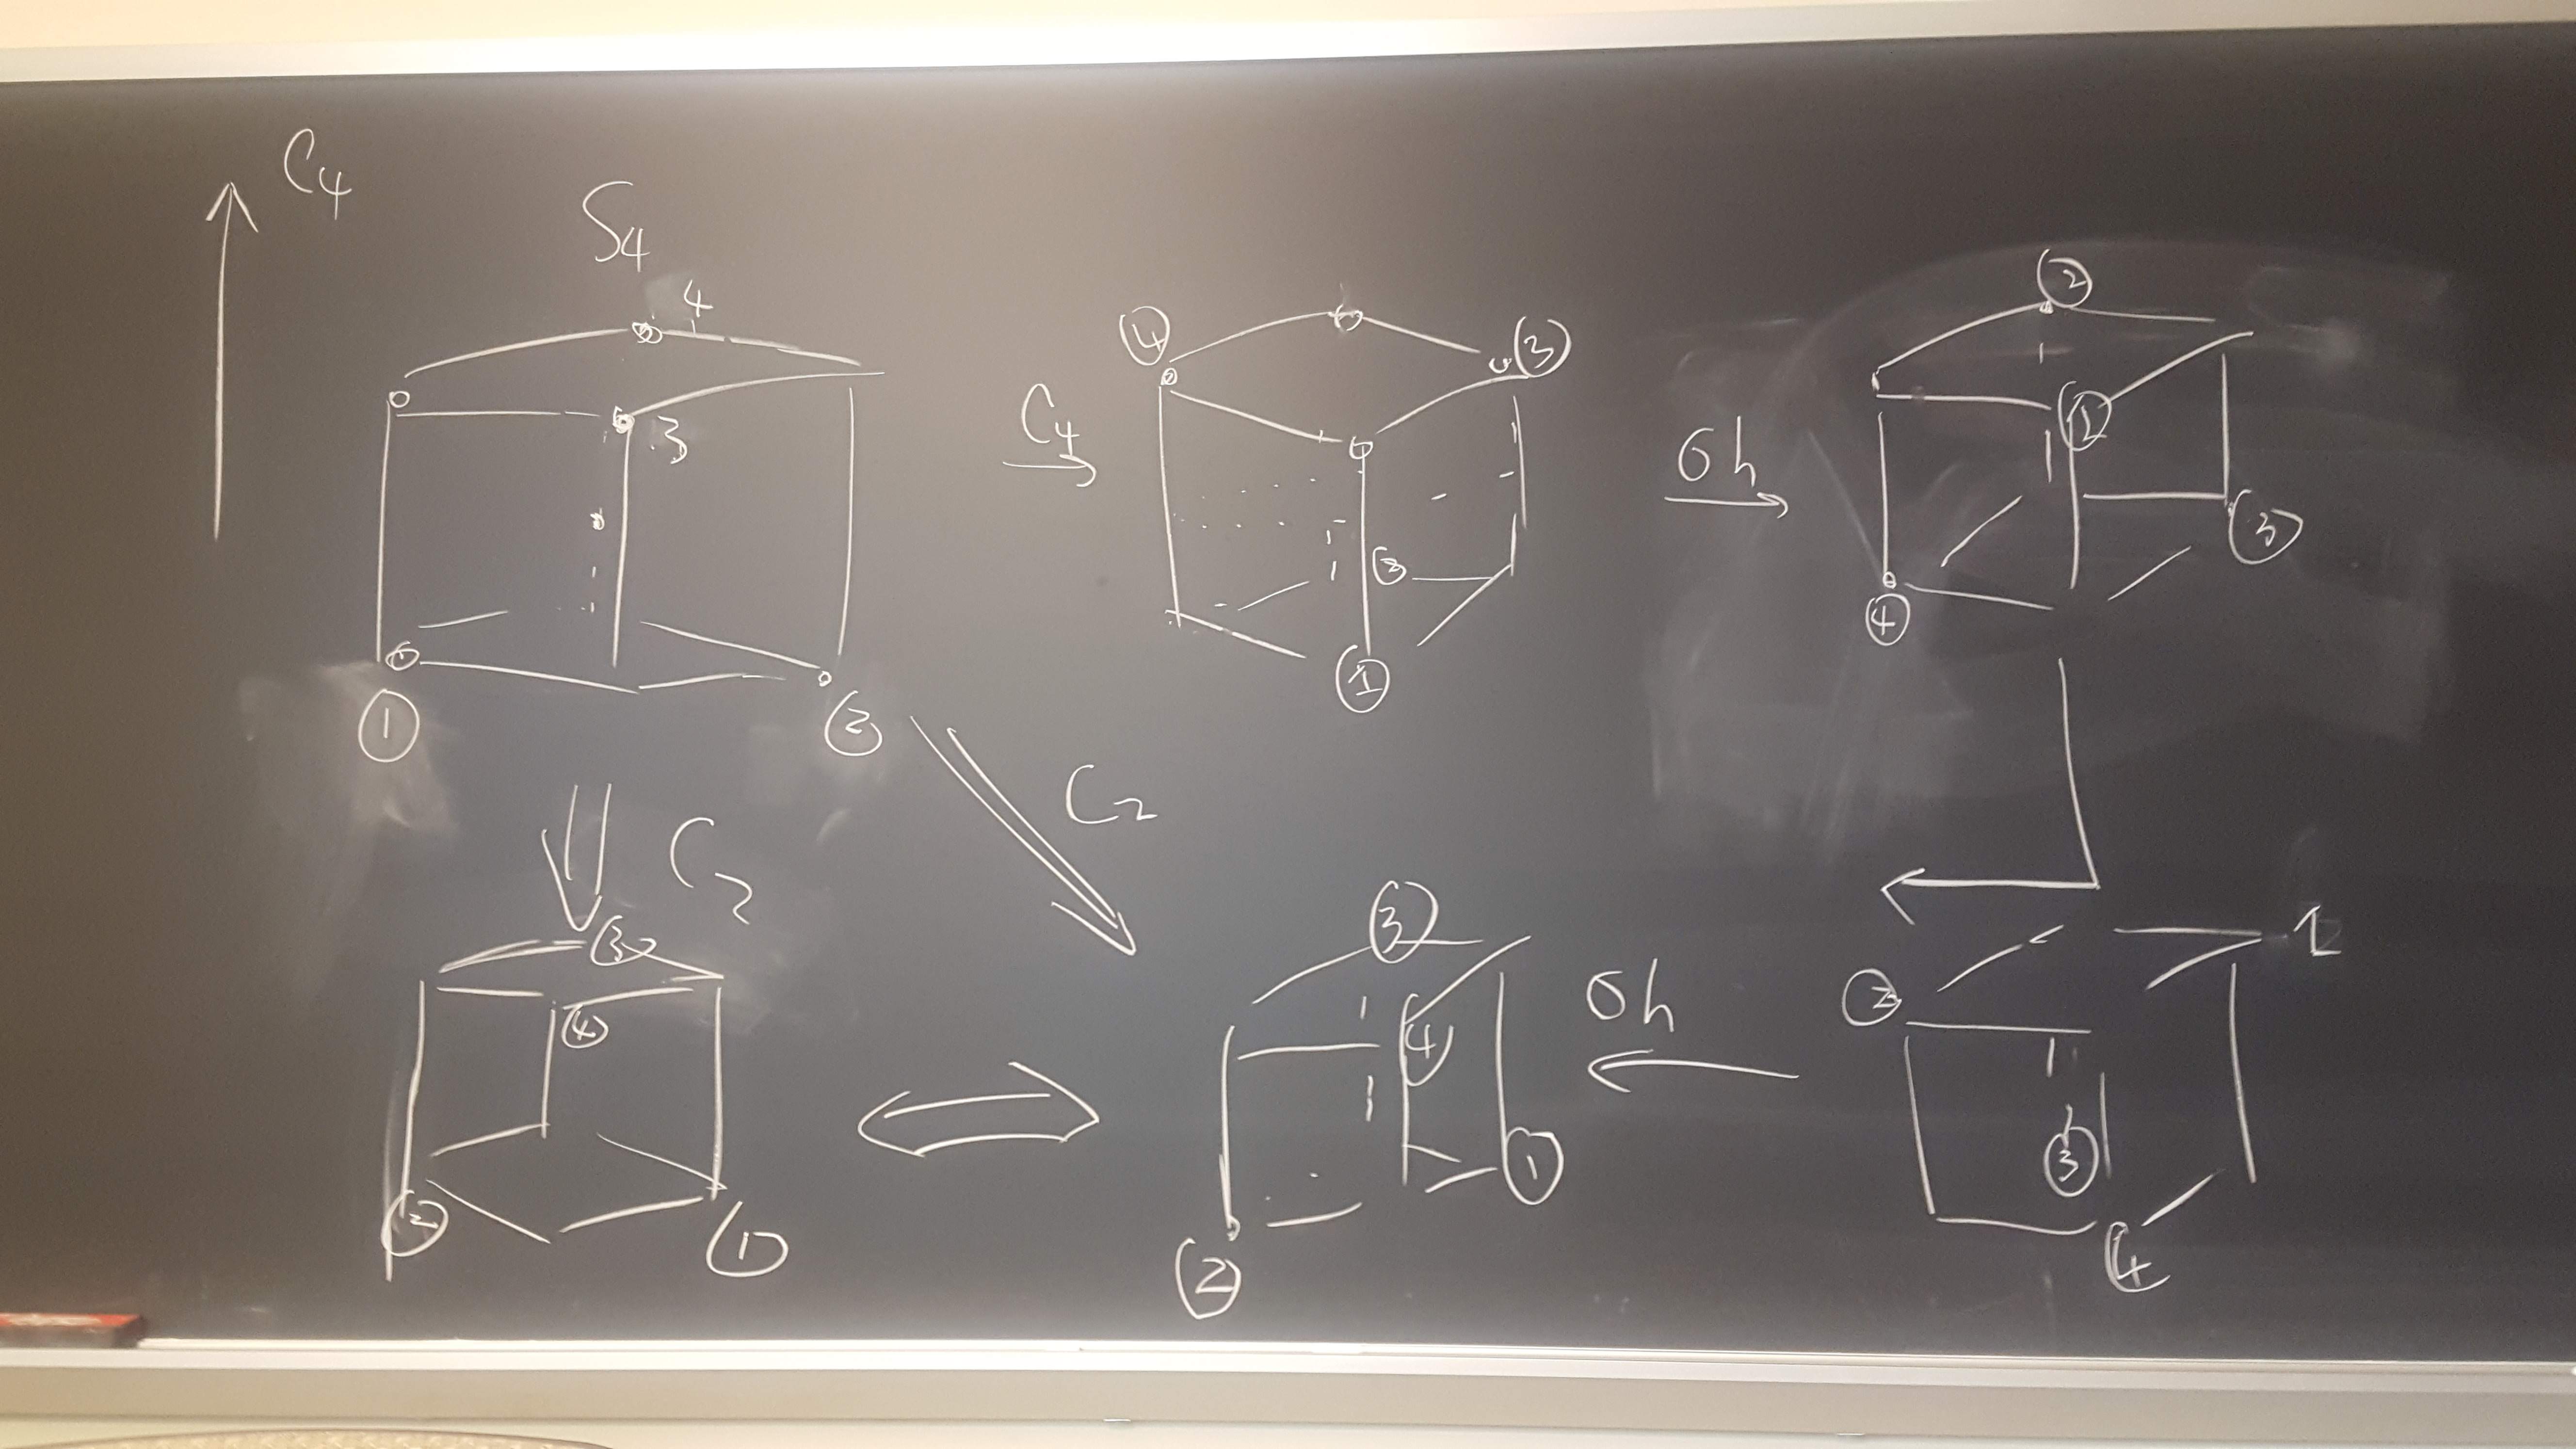 C4
S4
4
3
①
②
C4
④
③
②
①
σh
②
①
③
④
C2
C2
③
④
②
①
③
④
①
②
σh
1
②
③
④